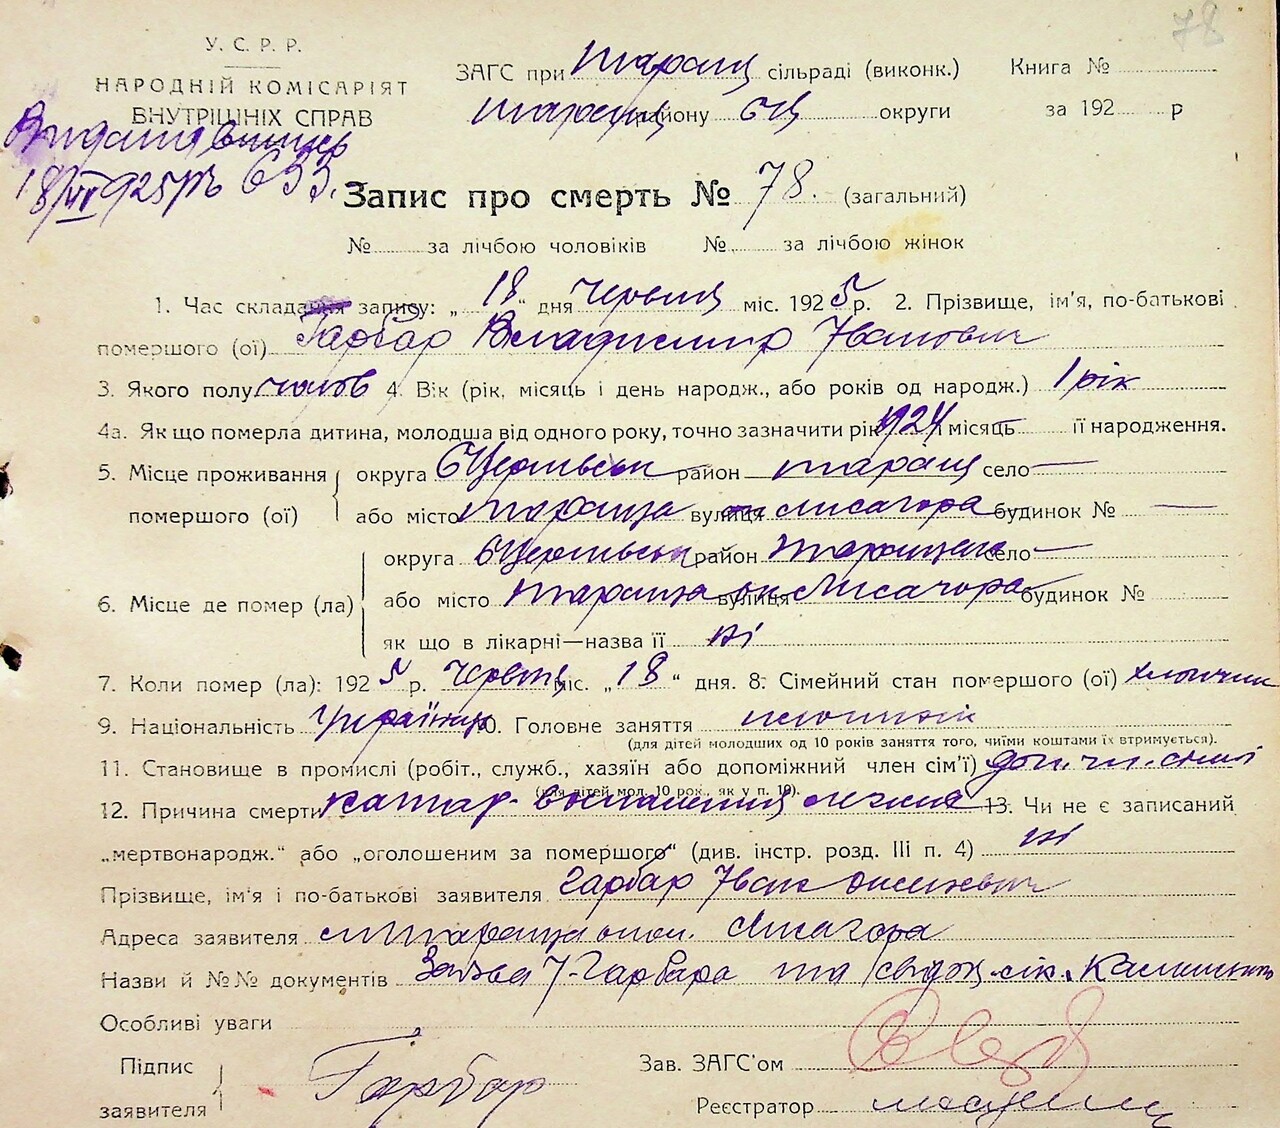 78
У. С. Р. Р.
НАРОДНІЙ КОМІСАРІЯТ
ВНУТРІШНІХ СПРАВ
ЗАГС при Таращ сільраді (виконк.) Книга №
Таращ району БЦ округи за 192 р
18/VI 925 р № 633.
Запис про смерть № 78. (загальний)
№ за лічбою чоловіків № за лічбою жінок
1. Час складання запису: „18“ дня Червня міс. 1925 р. 2. Прізвище, ім'я, по-батькові
помершого (ої) Гарбар Владимир Іванович
3. Якого полу чолов 4. Вік (рік, місяць і день народж., або років од народж.) 1 рік
4а. Як що померла дитина, молодша від одного року, точно зазначити рік 1924 місяць — її народження.
5. Місце проживання помершого (ої) округа БЦерківськ район Таращ село —
або місто Тараща вулиця Лисагора будинок № —
6. Місце де помер (ла) округа БЦерківськ район Таращ село —
або місто Тараща вулиця Лисагора будинок №
як що в лікарні—назва її ні
7. Коли помер (ла): 1925 р. Червня міс. „18“ дня. 8. Сімейний стан помершого (ої) хлопчик
9. Національність Українец 10. Головне заняття
(для дітей молодших од 10 років заняття того, чиїми коштами їх втримується).
11. Становище в промислі (робіт., служб., хазяїн або допоміжний член сім'ї) доп. чл. сімї
(для дітей мол. 10 рок., як у п. 10).
12. Причина смерти катар. воспаления легких 13. Чи не є записаний
„мертвонародж.“ або „оголошеним за помершого“ (див. інстр. розд. III п. 4) ні
Прізвище, ім'я і по-батькові заявителя Гарбар Іван
Адреса заявителя м Тараща Лисагора
Назви й №№ документів Заява І. Гарбара та
Особливі уваги
Підпис заявителя Гарбар Зав. ЗАГС'ом
Реєстратор